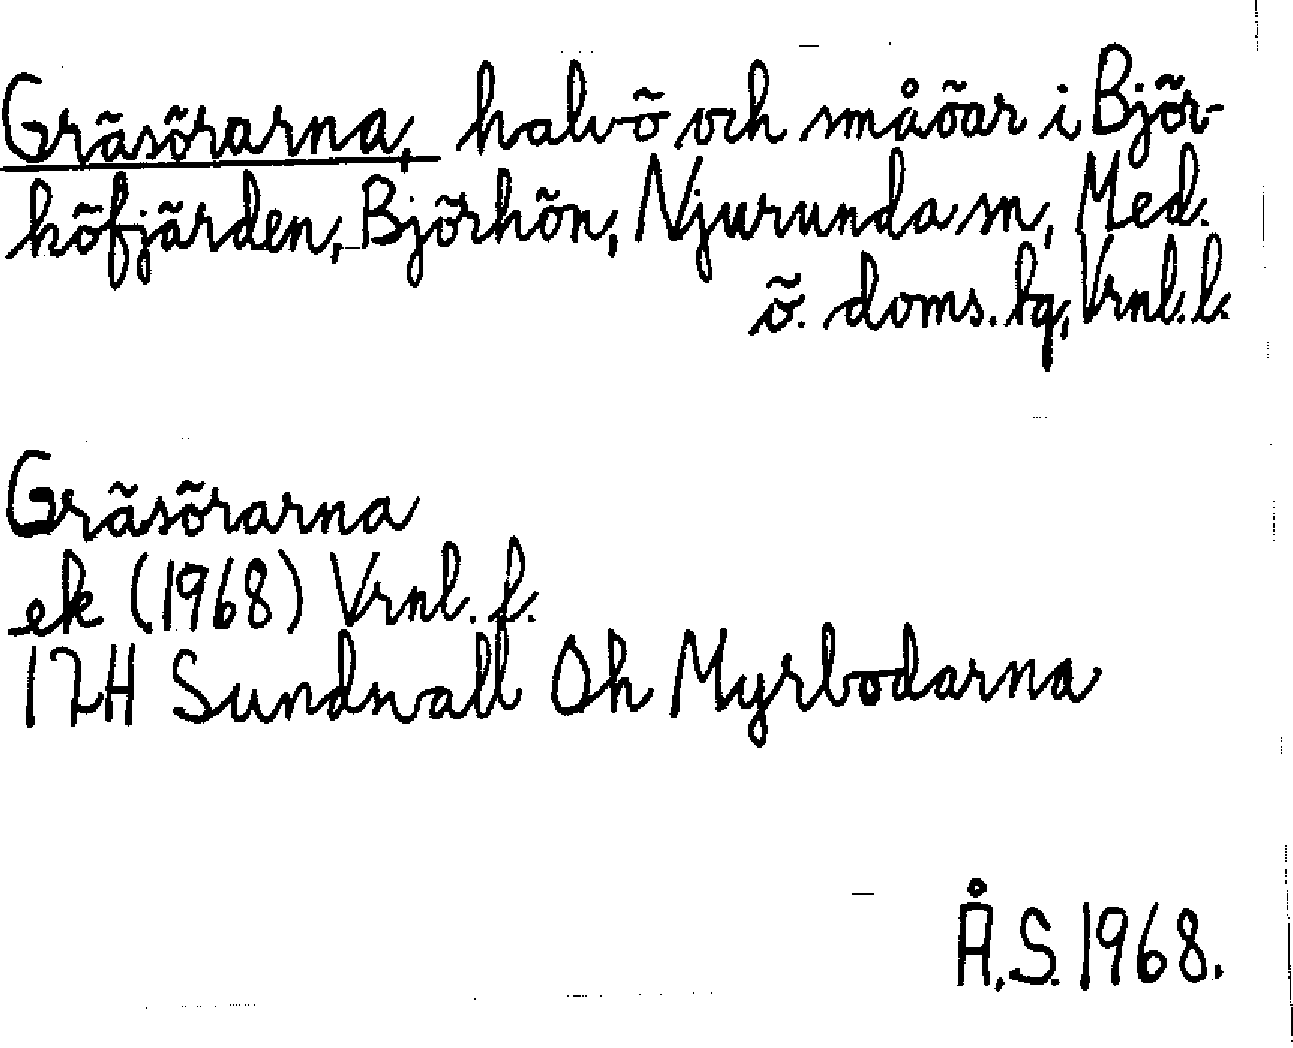 Gräsörarna, halvö och småöar i Björ-
köfjärden, Björkön, Njurunda sn, Med.
ö. doms. tg, Vrnl. l.
Gräsörarna
ek (1968) Vrnl. f.
17H Sundsvall 0h Myrbodarna
Å.S. 1968.